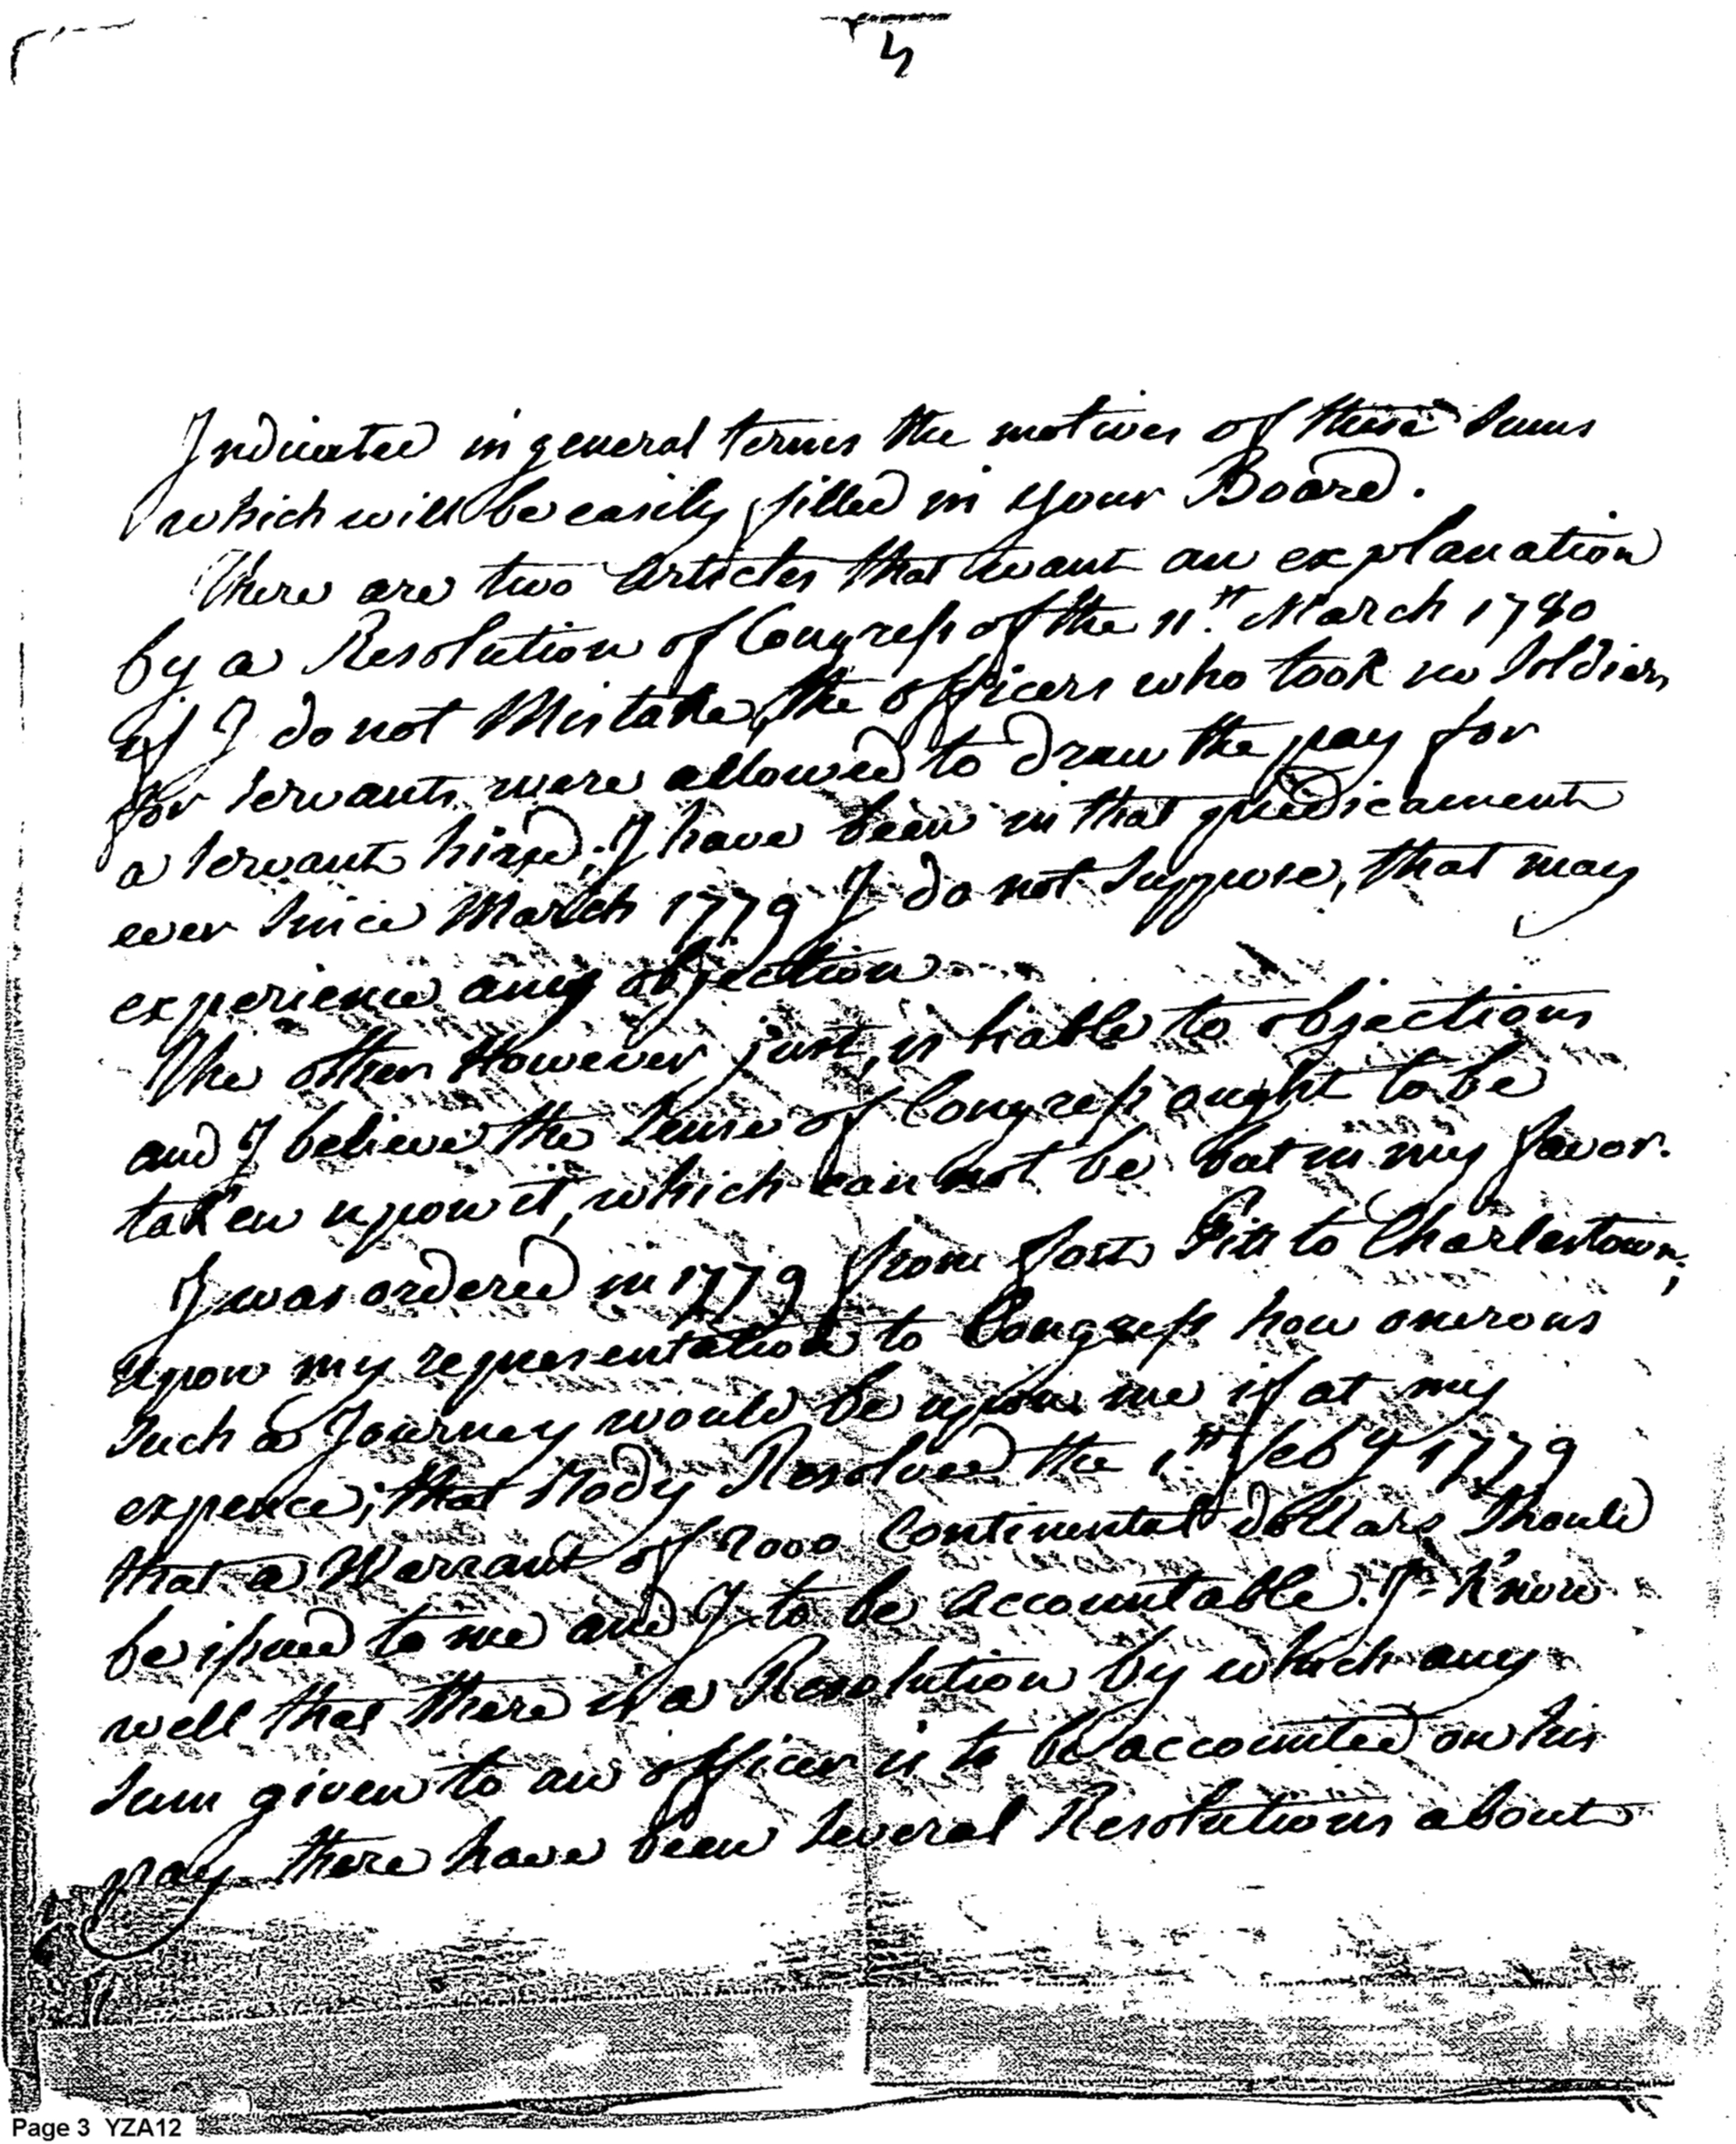 Indicated in general terms the motives of these Sums
which will be easily filled in your Board.
There are two Articles that want an explanation
by a Resolution of Congress of the 11th. March 1780
if I do not Mistake, the officers who took no Soldiers
for Servants, were allowed to draw the pay for
a Servant hired; I have been in that predicament
ever Since March 1779 I do not Suppose, that may
experience any objection
The other However just, is liable to objections
and I believe the Sense of Congress ought to be
taken upon it, which can not be but in my favor.
I was ordered in 1779 from fort Pitt to Charlestown;
upon my representation to Congress how onerous
Such a Journey would be upon me if at my
expence; that Body Resolved the 1.st feby 1779
that a Warrant of 2000 Continental dollars Should
be issued to me and I to be accountable. I know
well that there is a Resolution by which any
Sum given to an officer is to be accounted on his
pay there have been Several Resolutions about
Page 3 YZA12